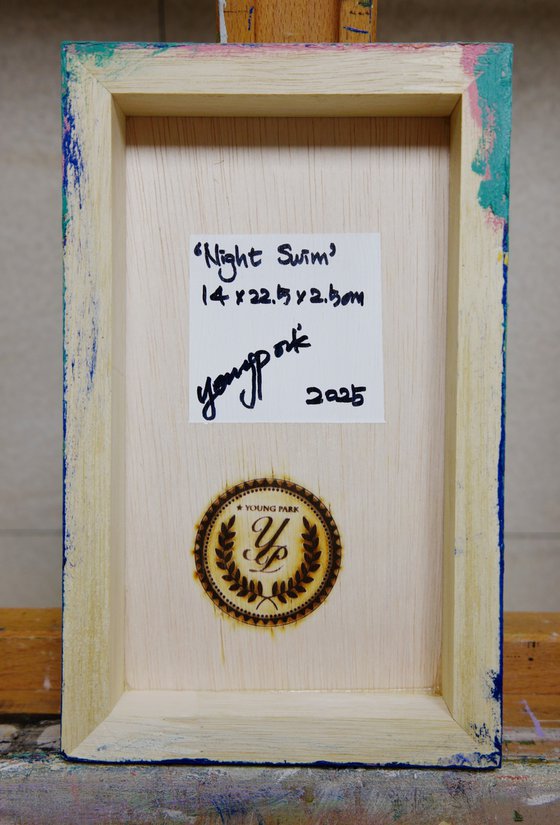 'Night Swim'
14 x 22.5 x 2.5cm
youngpark
2025
★ YOUNG PARK
YP